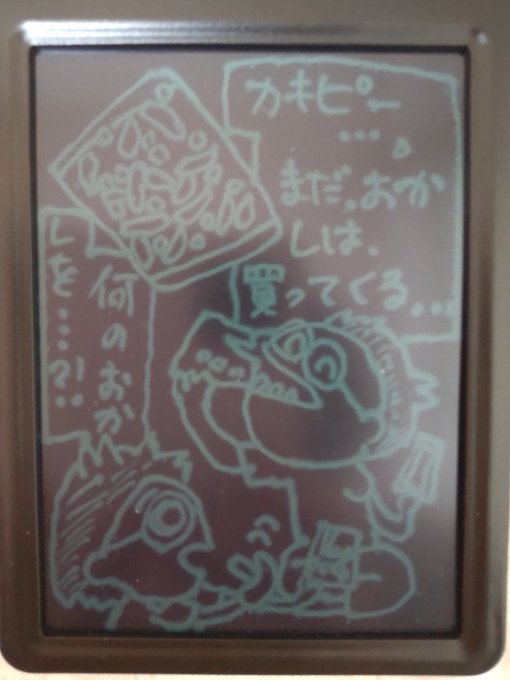 カキピー
…。
まだ、おか
しは、
買ってくる…
何のおか
しを…?!